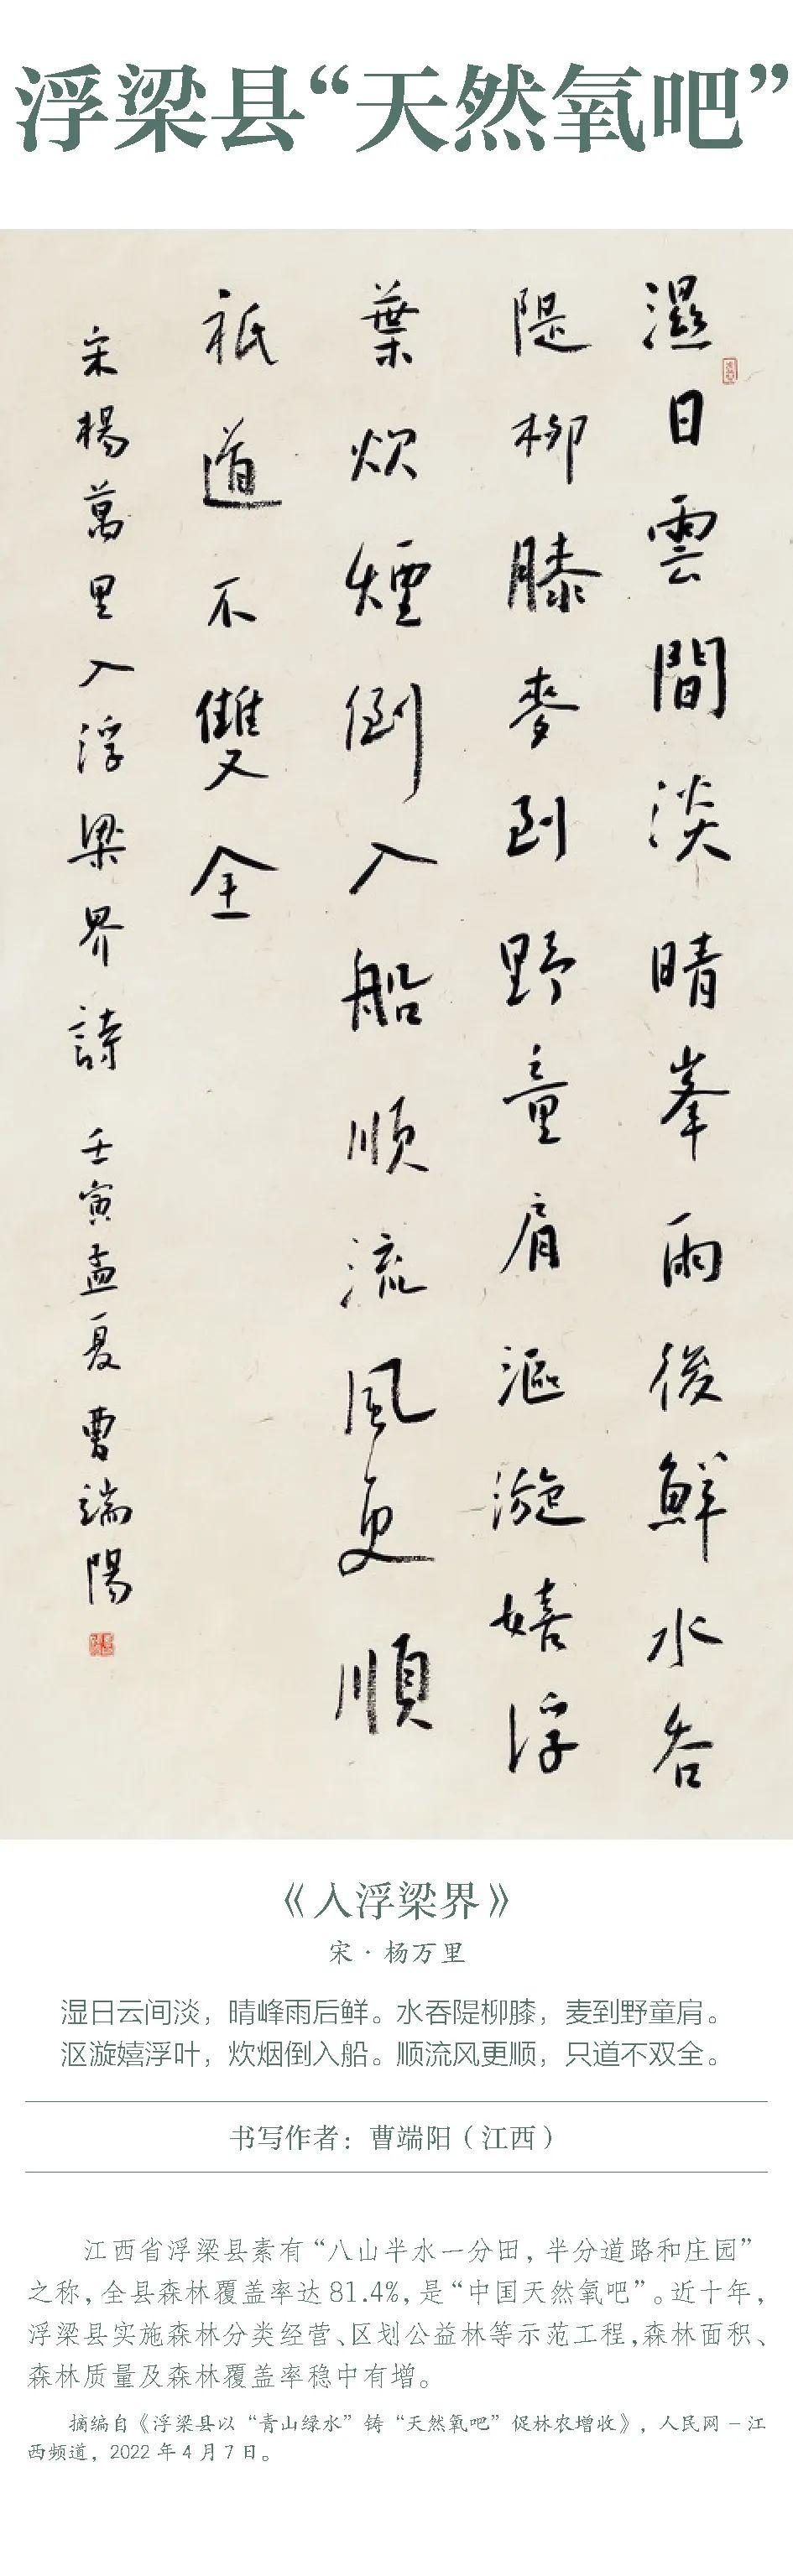 浮梁县“天然氧吧”
濕日雲間淡晴峯雨後鮮水吞
隄柳膝麥到野童肩漚漩嬉浮
葉炊煙倒入船順流風更順
祇道不雙全
宋楊萬里入浮梁界詩 壬寅孟夏曹端陽
《入浮梁界》
宋·杨万里
湿日云间淡，晴峰雨后鲜。水吞隄柳膝，麦到野童肩。
沤漩嬉浮叶，炊烟倒入船。顺流风更顺，只道不双全。
书写作者：曹端阳（江西）
江西省浮梁县素有“八山半水一分田，半分道路和庄园”
之称，全县森林覆盖率达 81.4%，是“中国天然氧吧”。近十年，
浮梁县实施森林分类经营、区划公益林等示范工程，森林面积、
森林质量及森林覆盖率稳中有增。
摘编自《浮梁县以“青山绿水”铸“天然氧吧”促林农增收》，人民网－江
西频道，2022 年 4 月 7 日。